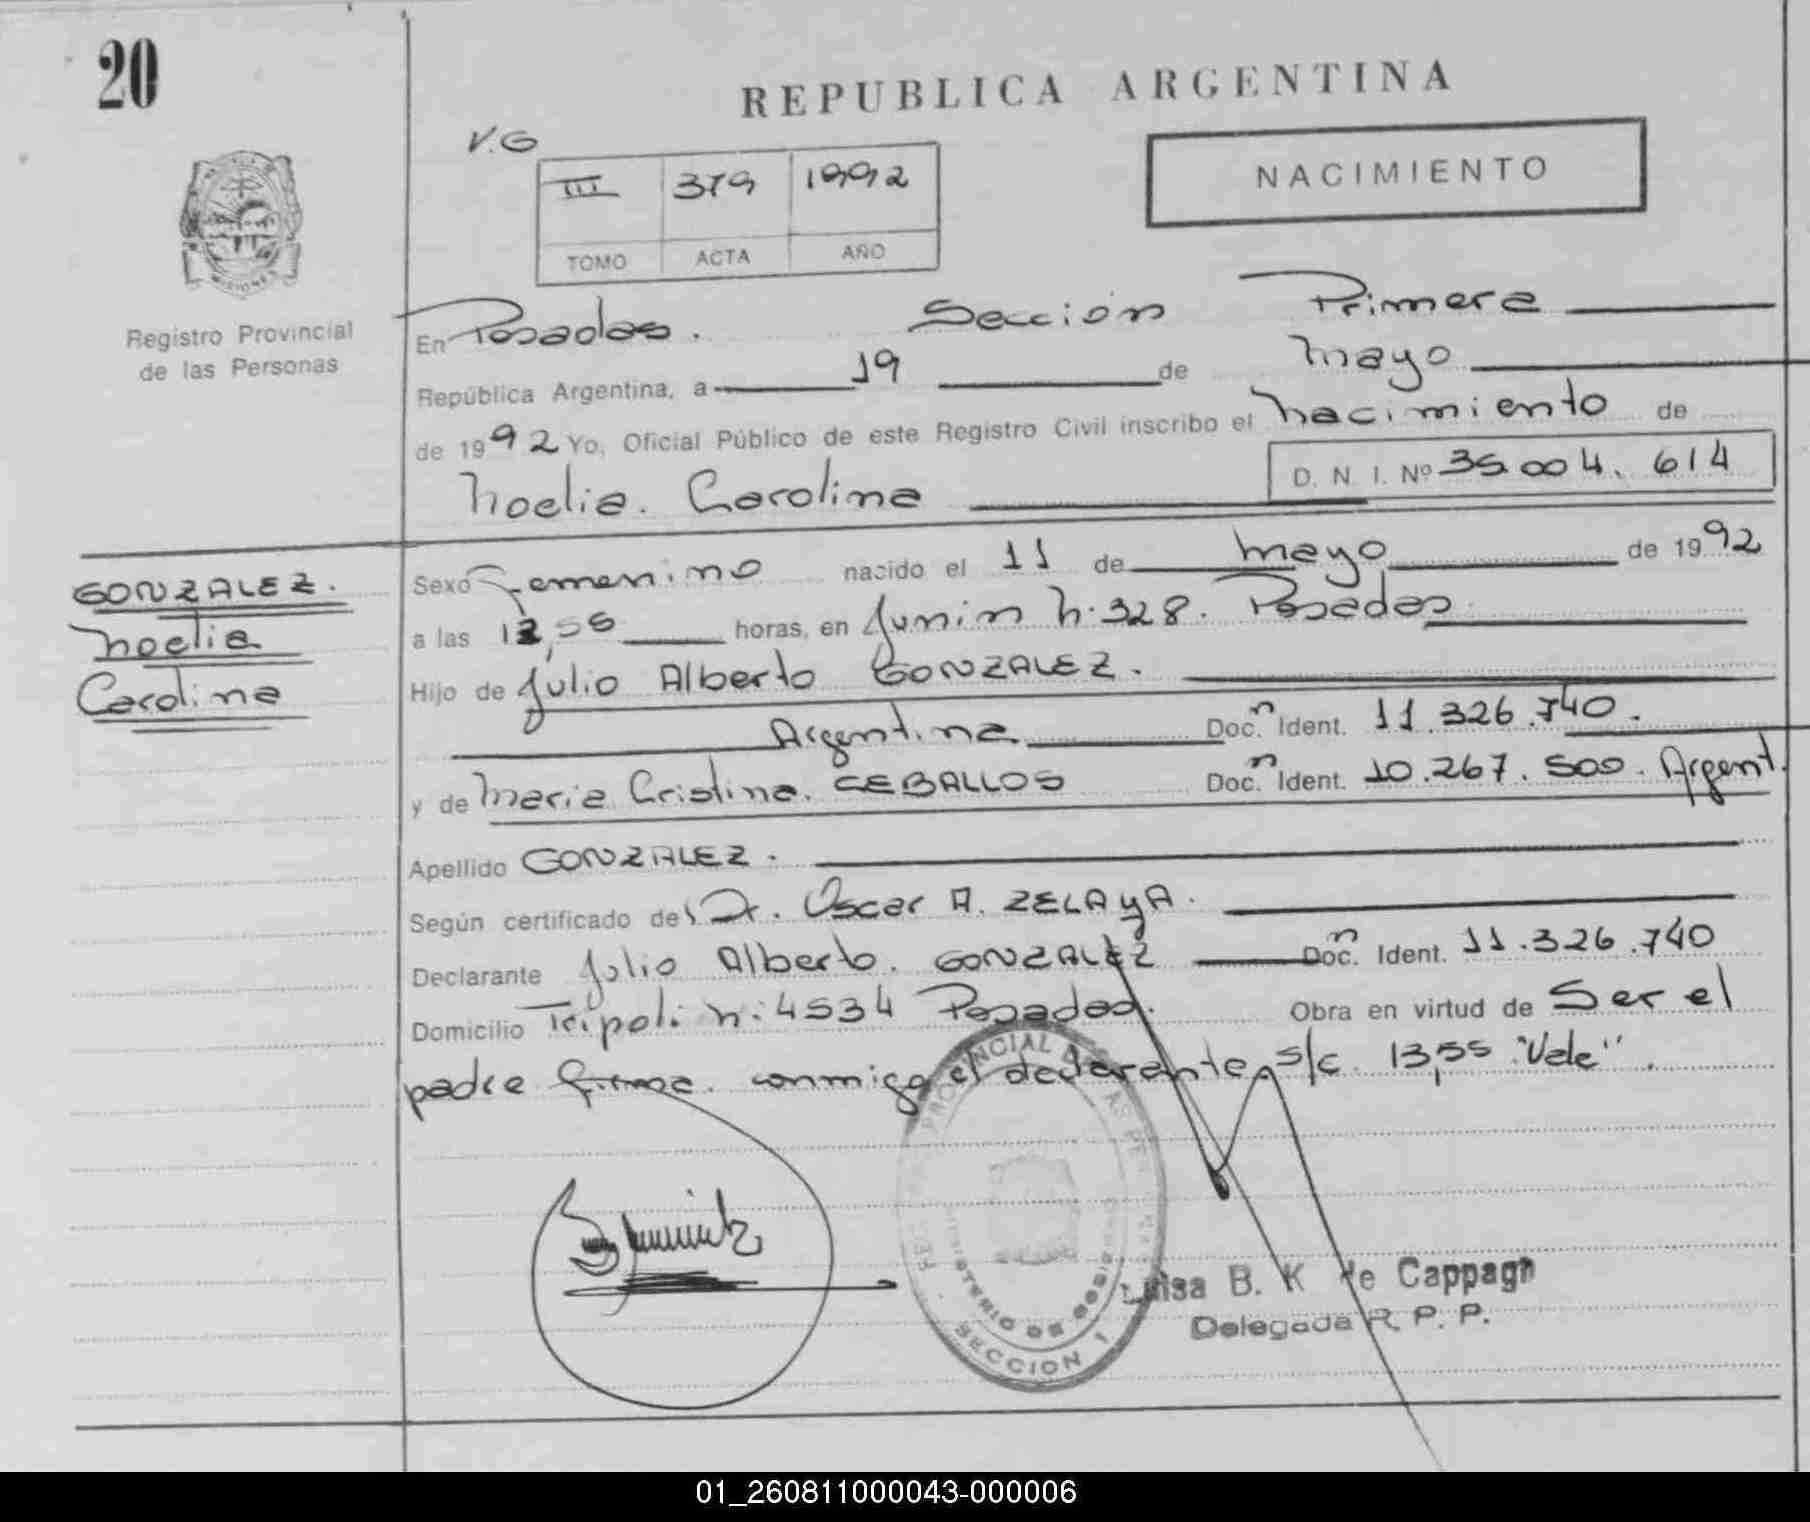 20
REPUBLICA ARGENTINA
V.G
III 379 1992
TOMO ACTA AÑO
NACIMIENTO
MISIONES
Registro Provincial
de las Personas
En Posadas. Sección Primera
República Argentina, a 19 de mayo
de 1992 Yo, Oficial Público de este Registro Civil inscribo el nacimiento de
Noelia. Carolina D. N. I. Nº 35.004.614
GONZALEZ.
Noelia
Carolina
Sexo Femenino nacido el 11 de mayo de 1992
a las 13,55 horas, en Junin N: 328. Posadas.
Hijo de Julio Alberto GONZALEZ.
Argentina Doc.n Ident. 11.326.740.
y de Maria Cristina. CEBALLOS Doc.n Ident. 10.267.500. Argent.
Apellido GONZALEZ.
Según certificado del Dr. Oscar A. ZELAyA.
Declarante Julio Alberto. GONZALEZ Doc.n Ident. 11.326.740
Domicilio Tripoli N: 4534 Posadas. Obra en virtud de Ser el
padre firma. conmigo el declarante, s/c. 13,55 "Vale".
PROVINCIAL DE LAS PE
MINISTERIO DE GOBIERNO
SECCION 1
Luisa B. K de Cappagh
Delegada R. P. P.
01_260811000043-000006